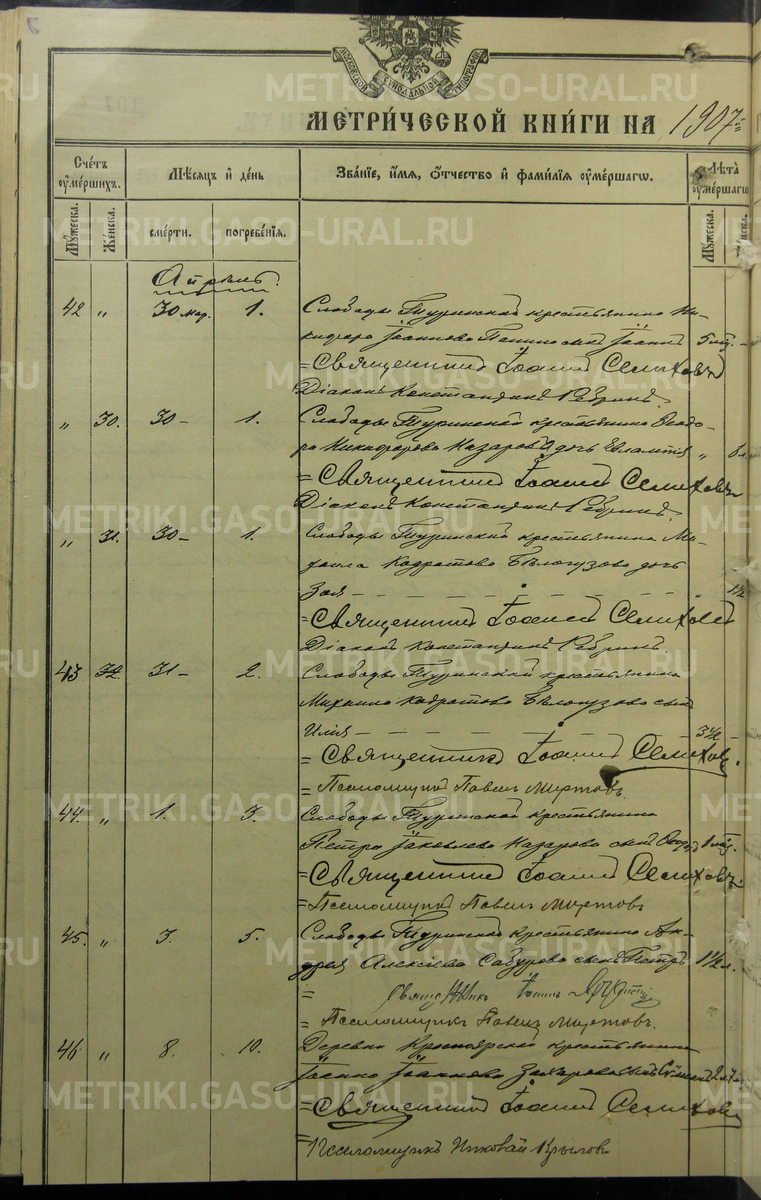 МОСКОВСКОЙ СѴНОДАЛЬНОЙ ТИПОГРАФІИ
МЕТРИ́ЧЕСКОЙ КНИ́ГИ НА 1907
Счетъ оумершихъ. Мѣсяцъ и день Званїе, имя, отчество и фамилїя оумершагѡ. Лѣта оумершагѡ
Мужеска. Женска. смерти. погребенїя. Мужеска.
Апрѣль.
42 „ 30 мар. 1. Слободы Туринской крестьянина Ни-
кифора Іоаннова Панина сынъ Іоаннъ 5
= Священникъ Іоаннъ Селиховъ
Діаконъ Константинъ Ребринъ.
„ 30. 30 – 1. Слободы Туринской крестьянина Ѳеодо-
ра Никифорова Назарова дочь Евлампія „
= Священникъ Іоаннъ Селиховъ
Діаконъ Константинъ Ребринъ.
„ 31. 30 – 1. Слободы Туринской крестьянина Ми-
хаила Кодратова Бѣлоузова дочь
Зоя „
= Священникъ Іоаннъ Селиховъ
Діаконъ Константинъ Ребринъ.
43 32. 31 – 2. Слободы Туринской крестьянина
Михаила Кодратова Бѣлоузова сынъ
Илія 3½
= Священникъ Іоаннъ Селиховъ.
= Псаломщикъ Павелъ Миртовъ.
44. „ 1. 3. Слободы Туринской крестьянина
Петра Іаковлева Назарова сынъ
= Священникъ Іоаннъ Селиховъ.
= Псаломщикъ Павелъ Миртовъ
45. „ 3. 5. Слободы Туринской крестьянина Ан-
дрея Алексіева Сабурова сынъ Петръ 1½ л.
= Священникъ Іоаннъ
= Псаломщикъ Павелъ Миртовъ.
46 „ 8. 10. Деревни Красноярской крестьянина
Іоанна Іоаннова Захарова сынъ
= Священникъ Іоаннъ Селиховъ
= Псаломщикъ Николай Крыловъ
METRIKI.GASO-URAL.RU